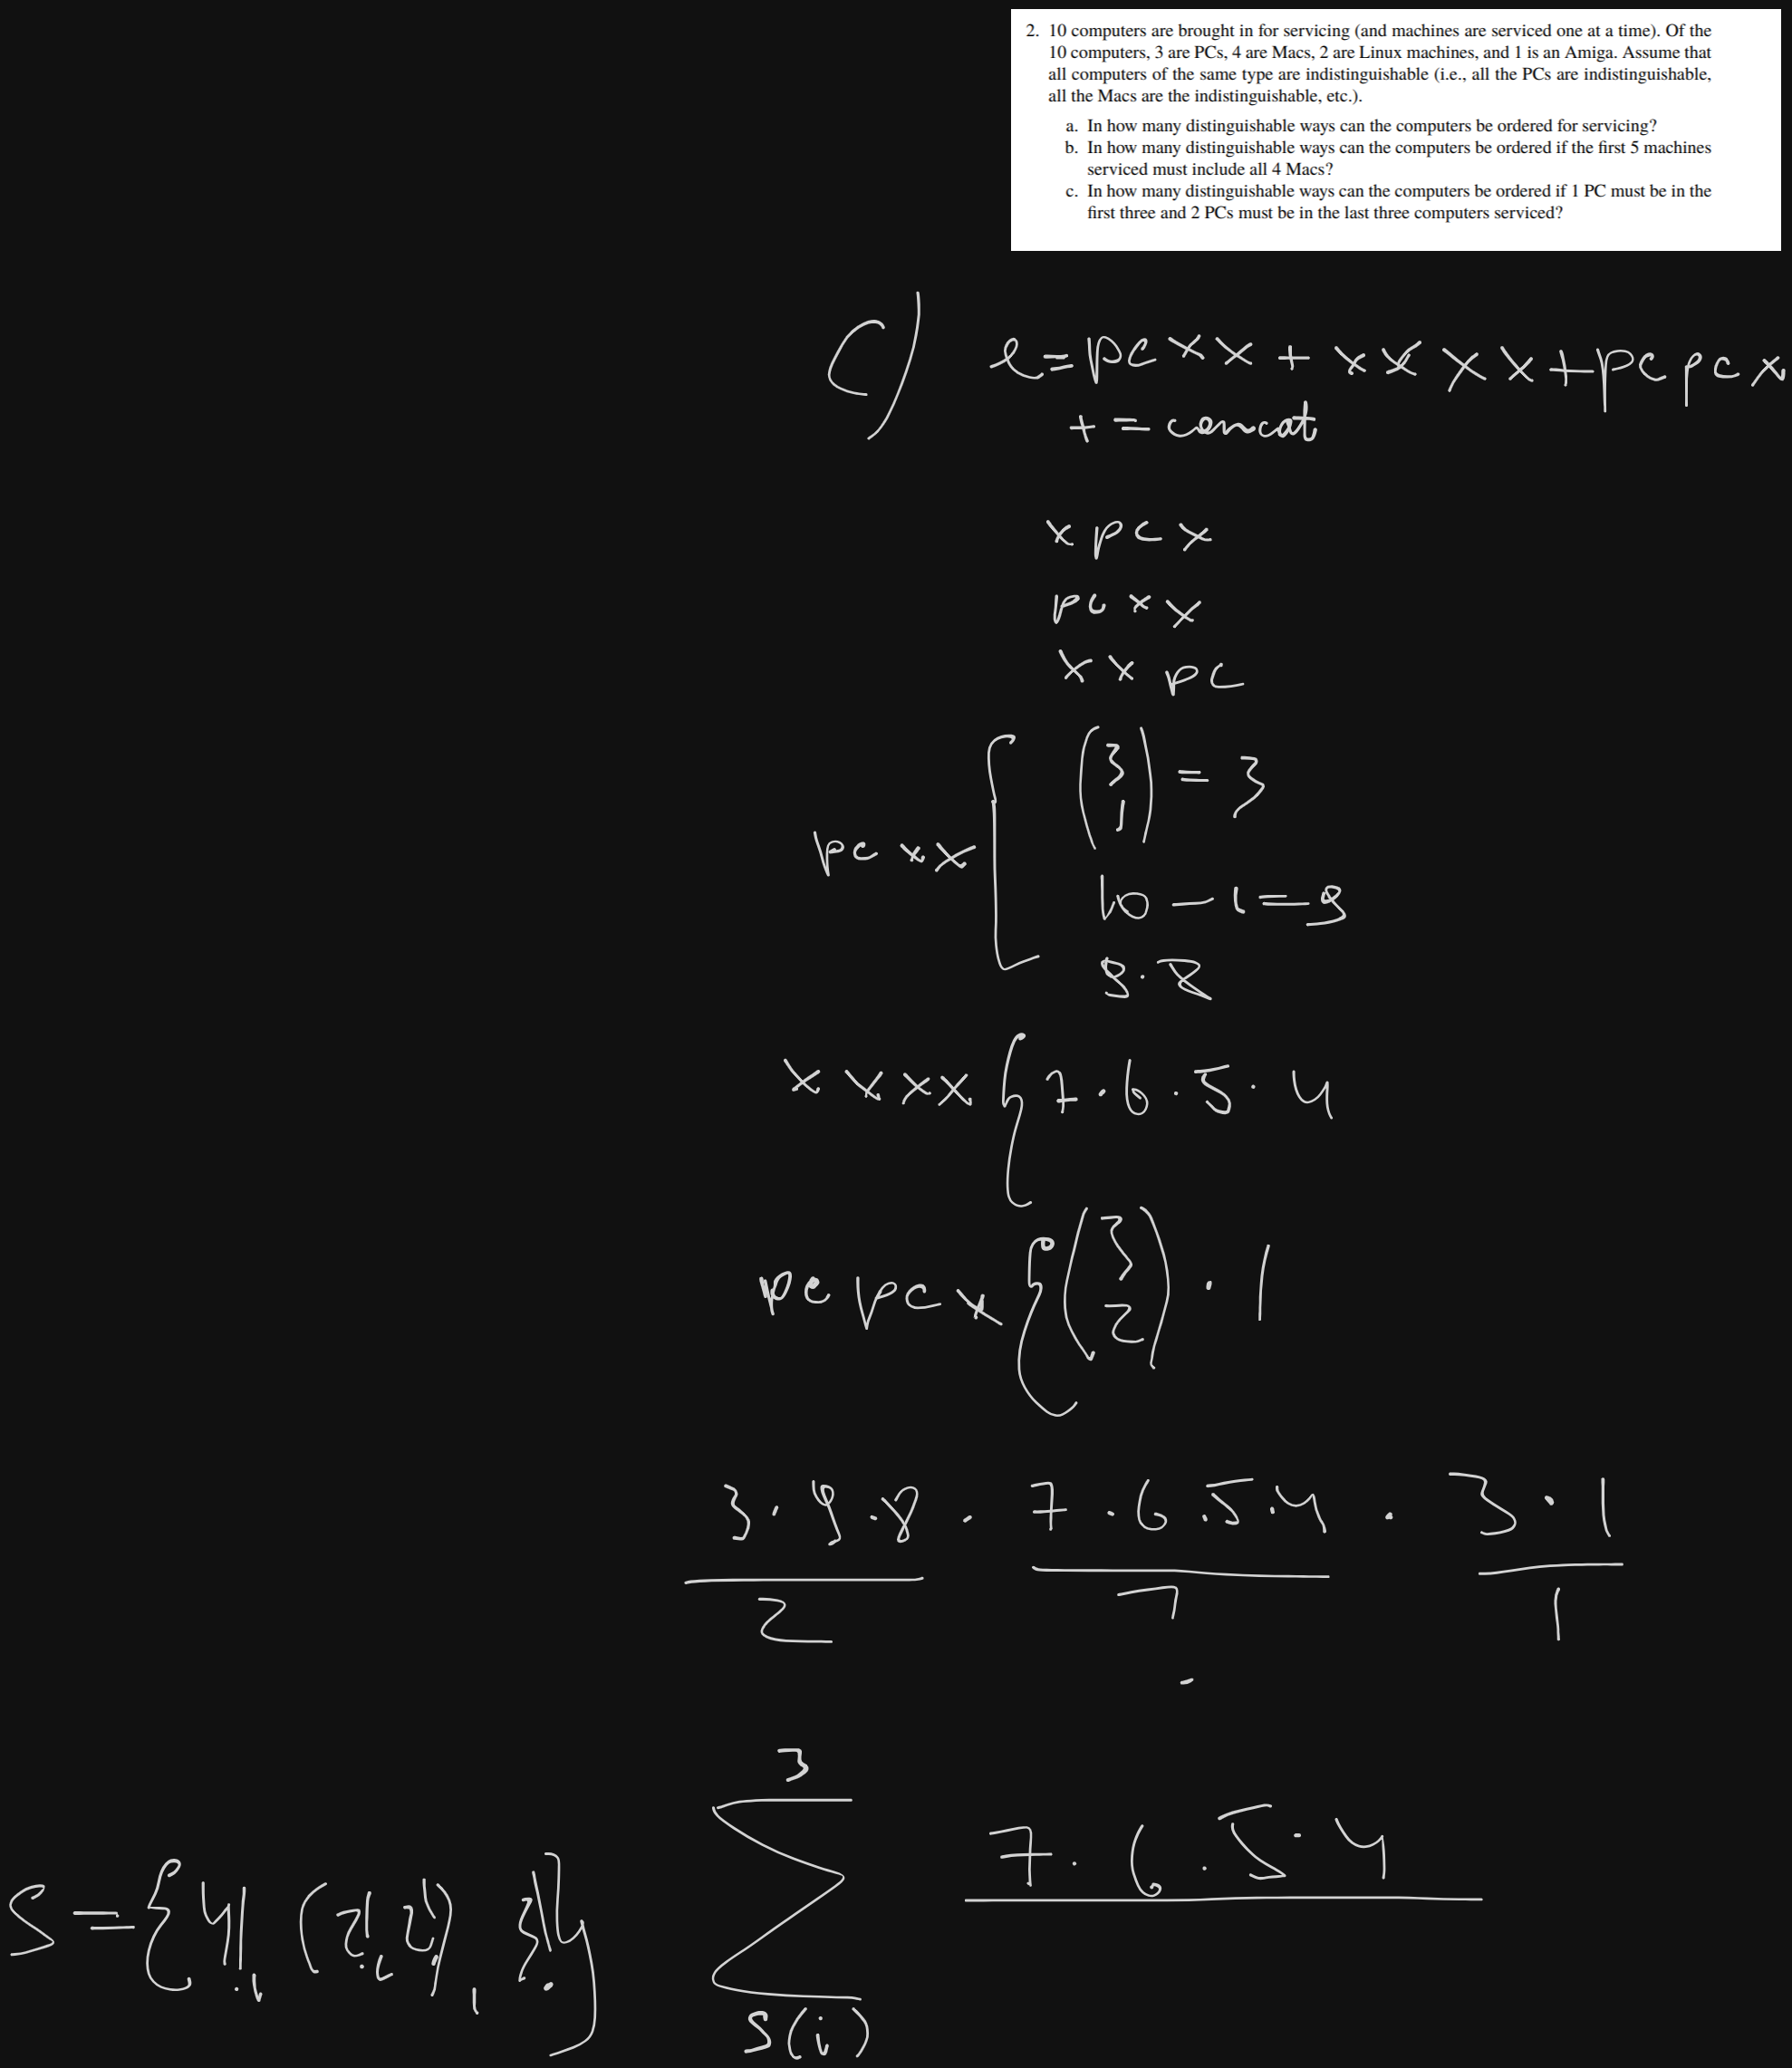 2. 10 computers are brought in for servicing (and machines are serviced one at a time). Of the
10 computers, 3 are PCs, 4 are Macs, 2 are Linux machines, and 1 is an Amiga. Assume that
all computers of the same type are indistinguishable (i.e., all the PCs are indistinguishable,
all the Macs are the indistinguishable, etc.).
a. In how many distinguishable ways can the computers be ordered for servicing?
b. In how many distinguishable ways can the computers be ordered if the first 5 machines
serviced must include all 4 Macs?
c. In how many distinguishable ways can the computers be ordered if 1 PC must be in the
first three and 2 PCs must be in the last three computers serviced?
c) l = pc x x + x x x x + pc pc x
+ = concat
x pc x
pc x x
x x pc
pc x x [ (3 1) = 3
10 - 1 = 9
9 · 8
x x x x { 7 · 6 · 5 · 4
pc pc x { (3 2) · 1
3 · 9 · 8 · 7 · 6 · 5 · 4 · 3 · 1
2 7 1
3
7 · 6 · 5 · 4
S = {4!, (2!, 2!), 3!} Σ
S(i)